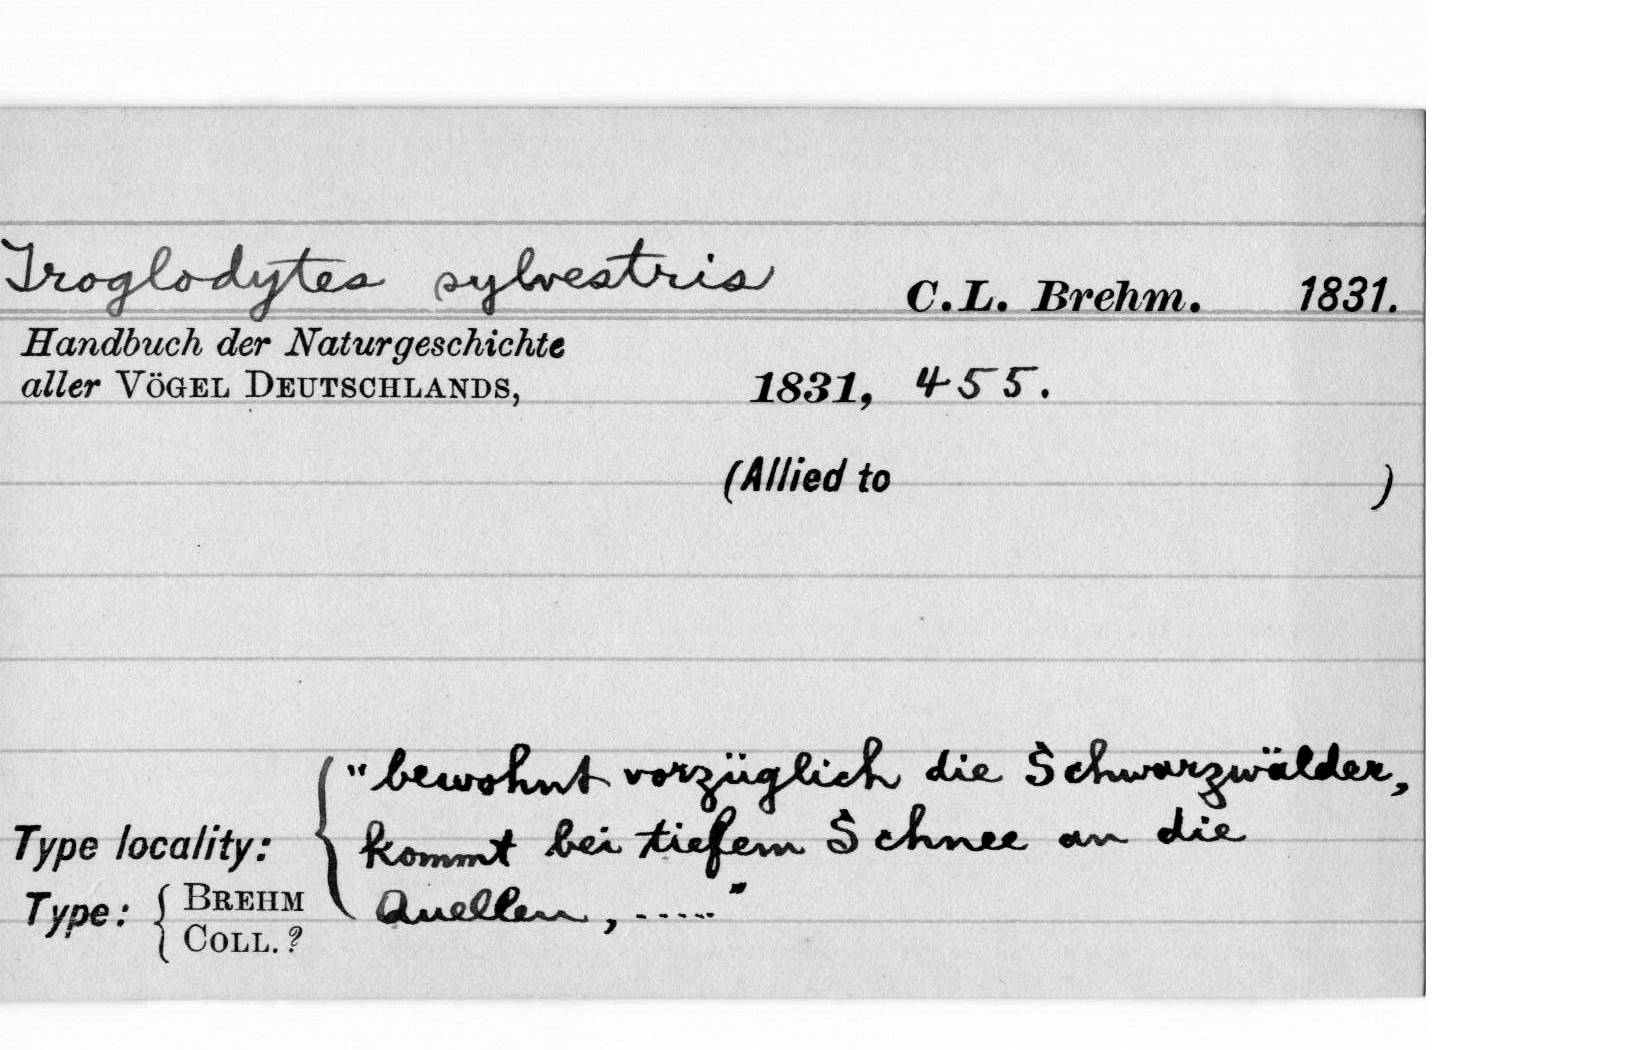 Troglodytes sylvestris C.L. Brehm. 1831.
Handbuch der Naturgeschichte
aller VÖGEL DEUTSCHLANDS, 1831, 455.
(Allied to )
"bewohnt vorzüglich die Schwarzwälder,
Type locality: kommt bei tiefem Schnee an die
Quellen, ....."
Type: BREHM
COLL.?